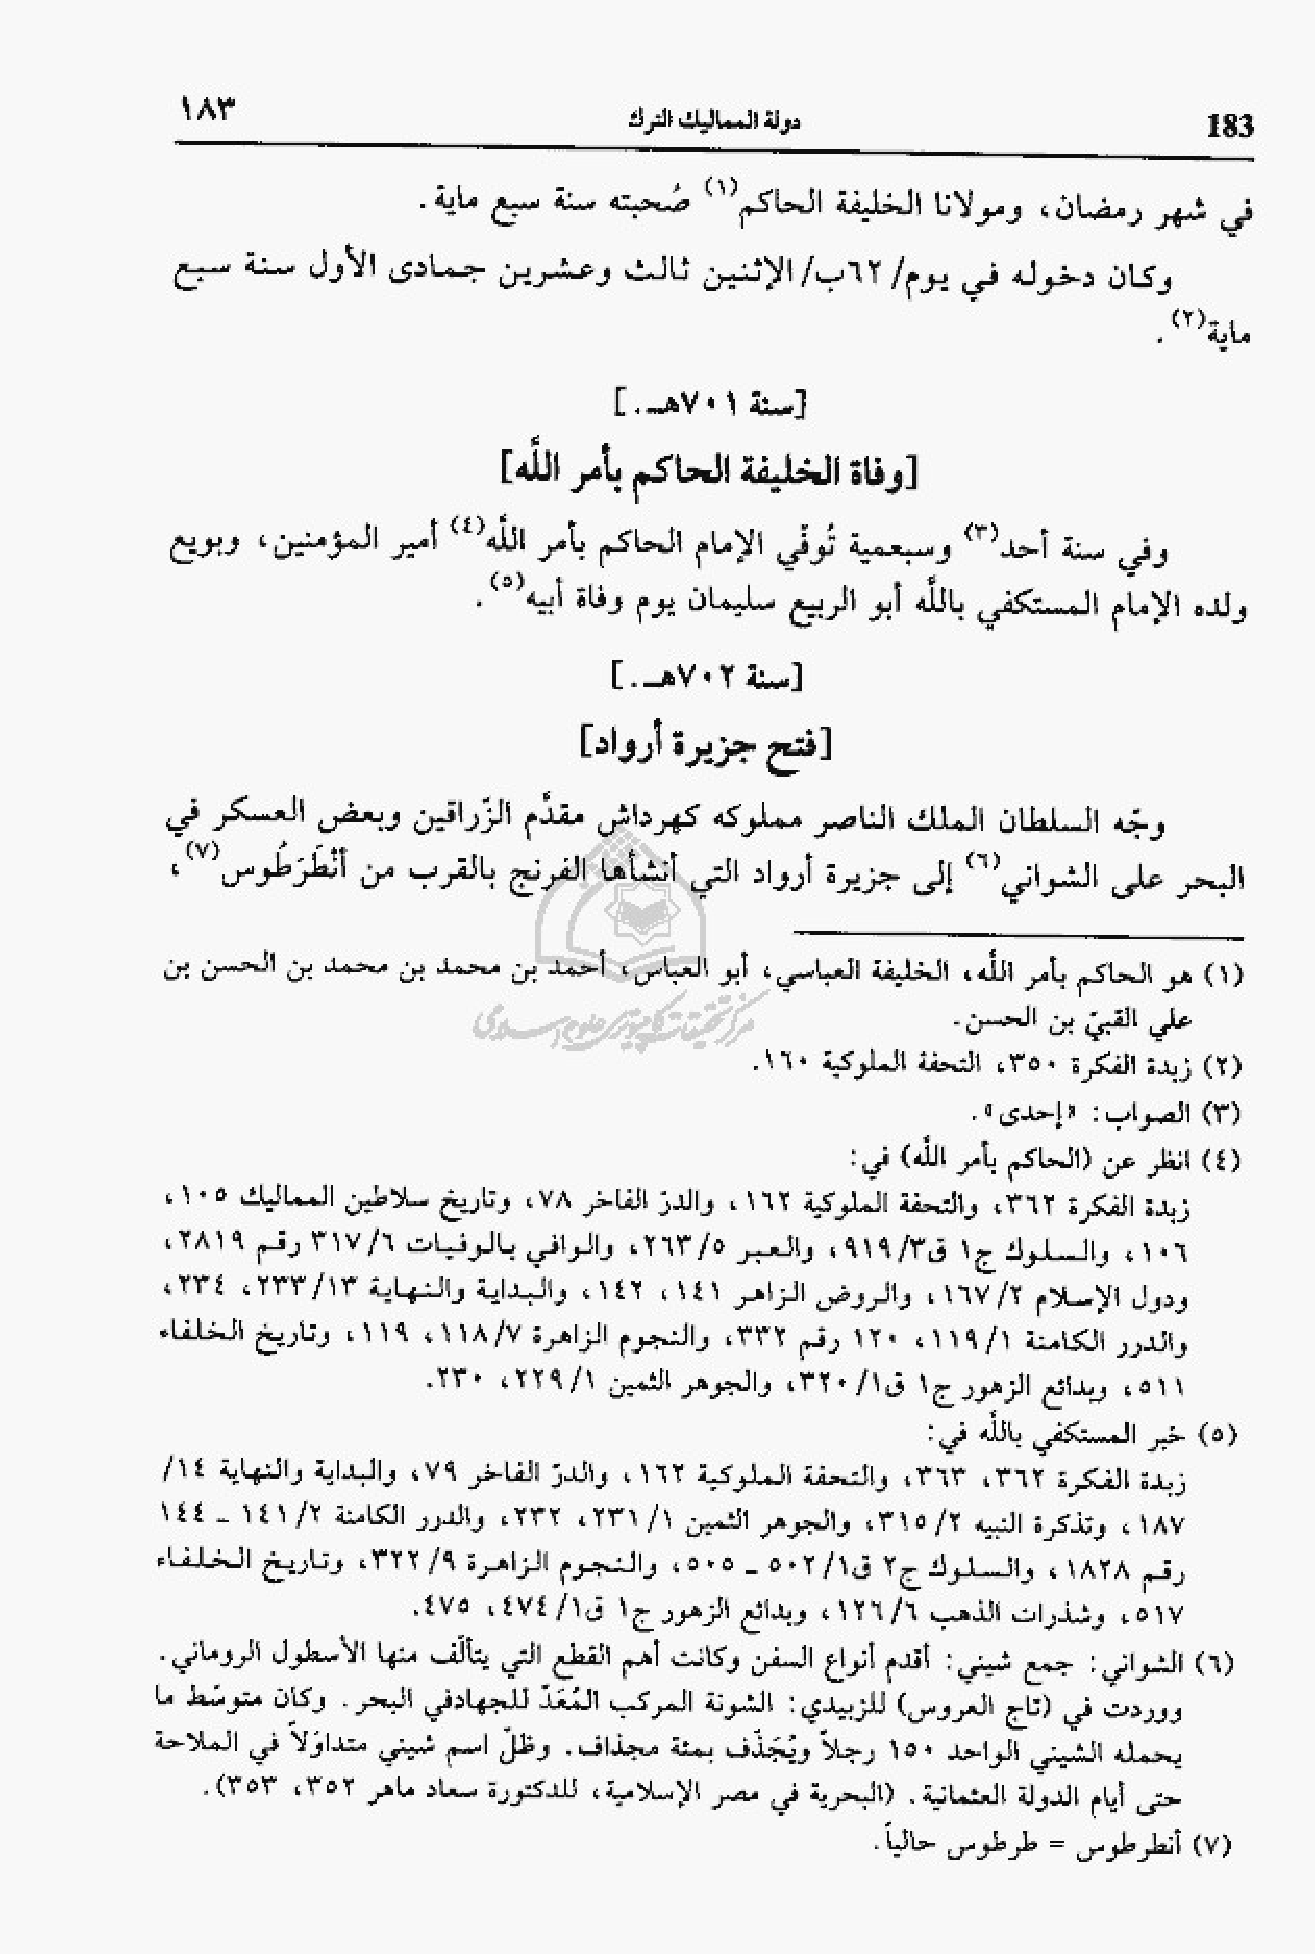 183 دولة المماليك الترك ١٨٣
في شهر رمضان، ومولانا الخليفة الحاكم(١) صُحبته سنة سبع ماية.
وكان دخوله في يوم/ ٦٢ب/ الإثنين ثالث وعشرين جمادى الأول سنة سبع
ماية(٢).
[سنة ٧٠١هـ.]
[وفاة الخليفة الحاكم بأمر اللَّه]
وفي سنة أحد(٣) وسبعمية تُوفّي الإمام الحاكم بأمر اللَّه(٤) أمير المؤمنين، وبويع
ولده الإمام المستكفي باللَّه أبو الربيع سليمان يوم وفاة أبيه(٥).
[سنة ٧٠٢هـ.]
[فتح جزيرة أرواد]
وجّه السلطان الملك الناصر مملوكه كهرداش مقدَّم الزّراقين وبعض العسكر في
البحر على الشواني(٦) إلى جزيرة أرواد التي أنشأها الفرنج بالقرب من أنْطَرَطُوس(٧)،
(١) هو الحاكم بأمر اللَّه، الخليفة العباسي، أبو العباس، أحمد بن محمد بن محمد بن الحسن بن
علي القبيّ بن الحسن.
(٢) زبدة الفكرة ٣٥٠، التحفة الملوكية ١٦٠.
(٣) الصواب: «إحدى».
(٤) انظر عن (الحاكم بأمر اللَّه) في:
زبدة الفكرة ٣٦٢، والتحفة الملوكية ١٦٢، والدرّ الفاخر ٧٨، وتاريخ سلاطين المماليك ١٠٥،
١٠٦، والسلوك ج١ ق٣/ ٩١٩، والعبر ٥/ ٢٦٣، والوافي بالوفيات ٦/ ٣١٧ رقم ٢٨١٩،
ودول الإسلام ٢/ ١٦٧، والروض الزاهر ١٤١، ١٤٢، والبداية والنهاية ١٣/ ٢٣٣، ٢٣٤،
والدرر الكامنة ١/ ١١٩، ١٢٠ رقم ٣٣٢، والنجوم الزاهرة ٧/ ١١٨، ١١٩، وتاريخ الخلفاء
٥١١، وبدائع الزهور ج١ ق١/ ٣٢٠، والجوهر الثمين ١/ ٢٢٩، ٢٣٠.
(٥) خبر المستكفي باللَّه في:
زبدة الفكرة ٣٦٢، ٣٦٣، والتحفة الملوكية ١٦٢، والدرّ الفاخر ٧٩، والبداية والنهاية ١٤/
١٨٧، وتذكرة النبيه ٢/ ٣١٥، والجوهر الثمين ١/ ٢٣١، ٢٣٢، والدرر الكامنة ٢/ ١٤١ ـ ١٤٤
رقم ١٨٢٨، والسلوك ج٢ ق١/ ٥٠٢ ـ ٥٠٥، والنجوم الزاهرة ٩/ ٣٢٢، وتاريخ الخلفاء
٥١٧، وشذرات الذهب ٦/ ١٢٦، وبدائع الزهور ج١ ق١/ ٤٧٤، ٤٧٥.
(٦) الشواني: جمع شيني: أقدم أنواع السفن وكانت أهم القطع التي يتألّف منها الأسطول الروماني.
ووردت في (تاج العروس) للزبيدي: الشونة المركب المُعَدّ للجهادفي البحر. وكان متوسّط ما
يحمله الشيني الواحد ١٥٠ رجلاً ويّجَذّف بمئة مجذاف. وظلّ اسم شيني متداوَلاً في الملاحة
حتى أيام الدولة العثمانية. (البحرية في مصر الإسلامية، للدكتورة سعاد ماهر ٣٥٢، ٣٥٣).
(٧) أنطرطوس = طرطوس حالياً.
مركز تحقيقات كامپيوترى علوم اسلامى